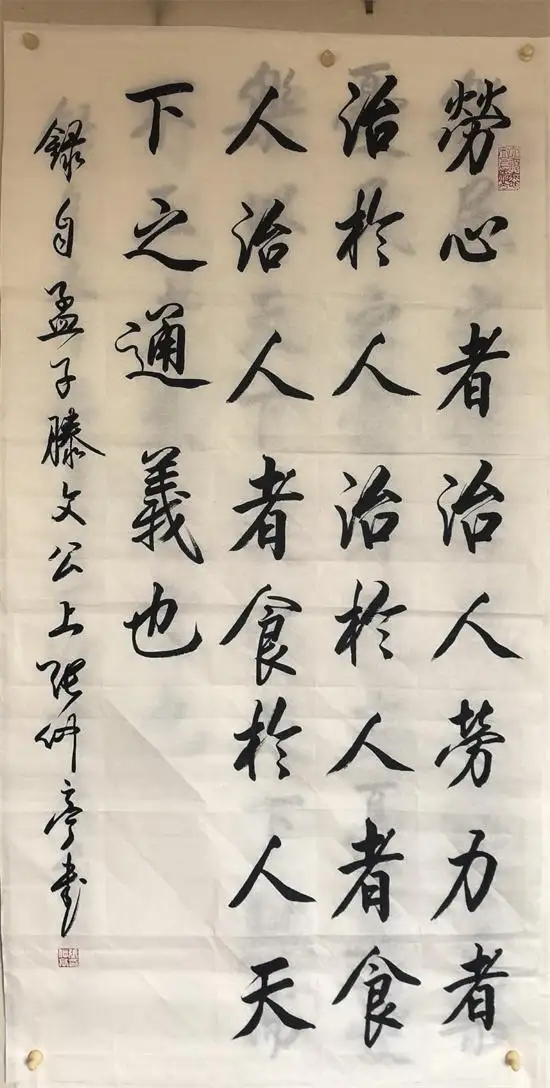 勞心者治人勞力者
治於人治於人者食
人治人者食於人天
下之通義也
錄自孟子滕文公上張仲亭書